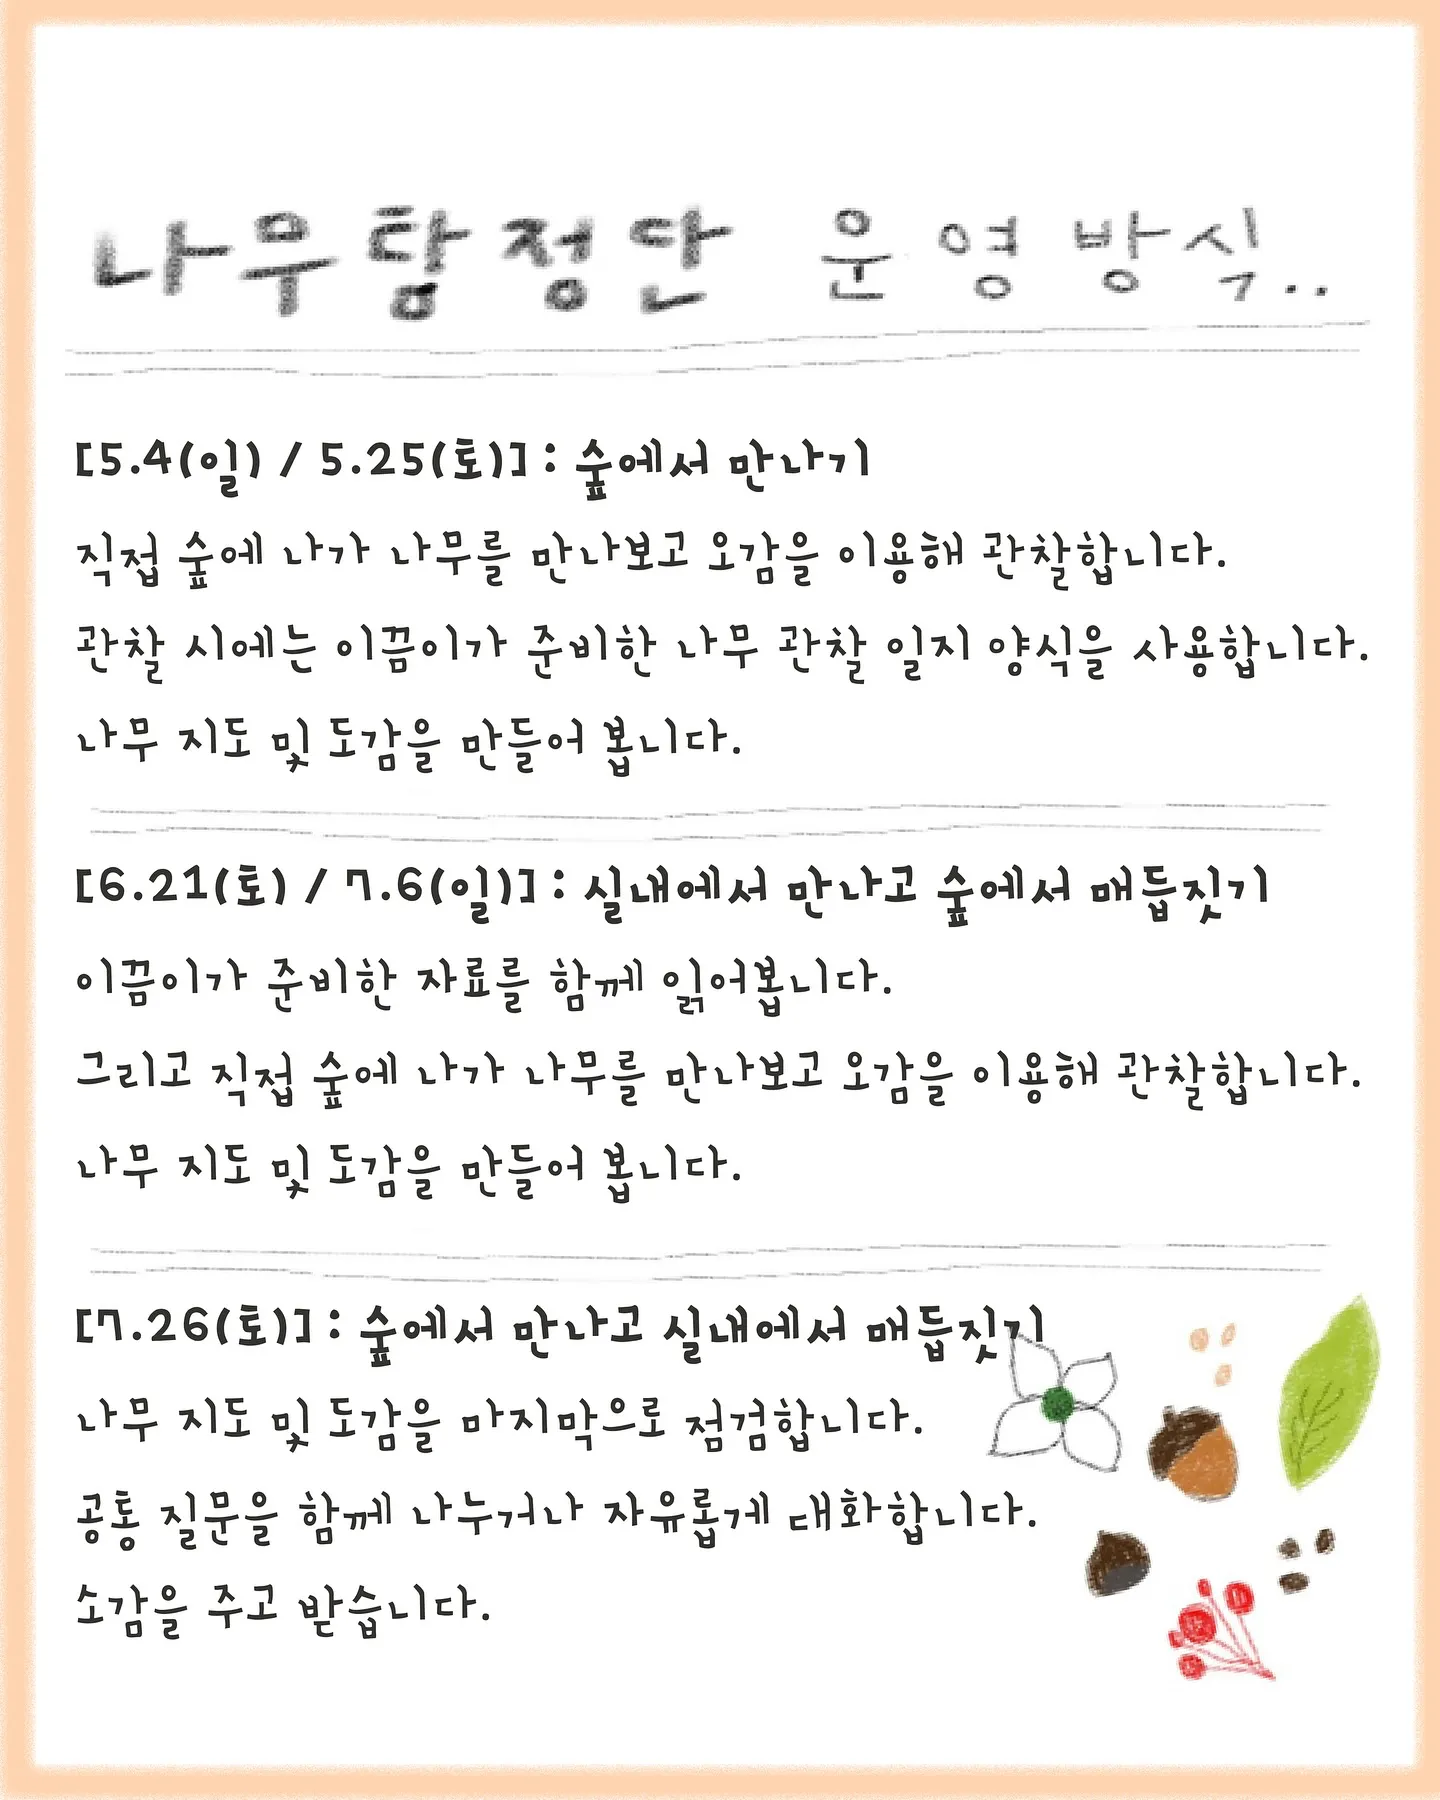 나무탐정단 운영방식..
[5.4(일) / 5.25(토)] : 숲에서 만나기
직접 숲에 나가 나무를 만나보고 오감을 이용해 관찰합니다.
관찰 시에는 이끔이가 준비한 나무 관찰 일지 양식을 사용합니다.
나무 지도 및 도감을 만들어 봅니다.
[6.21(토) / 7.6(일)] : 실내에서 만나고 숲에서 매듭짓기
이끔이가 준비한 자료를 함께 읽어봅니다.
그리고 직접 숲에 나가 나무를 만나보고 오감을 이용해 관찰합니다.
나무 지도 및 도감을 만들어 봅니다.
[7.26(토)] : 숲에서 만나고 실내에서 매듭짓기
나무 지도 및 도감을 마지막으로 점검합니다.
공통 질문을 함께 나누거나 자유롭게 대화합니다.
소감을 주고 받습니다.